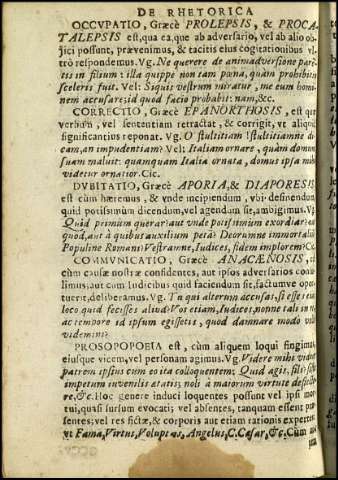 DE RHETORICA
OCCVPATIO, Græcè PROLEPSIS, & PROCA-
TALEPSIS est, qua ea, que ab adversario, vel ab alio ob-
jici possunt, prævenimus, & tacitis eius cogitationibus vl-
trò respondemus. Vg. Ne querere de animadversione pare-
tis in filium: illa quippe non tam pœna, quàm prohibitio
sceleris fuit. Vel: Siquis vestrum miratur, me eum homi-
nem accusare; id quod facio probabit: nam, &c.
CORRECTIO, Græcè EPANORTHOSIS, est que
verbum, vel sententiam retractat, & corrigit, vt aliquid
significantius reponat. Vg. O stultitiam! stultitiamne di-
cam, an impudentiam? Vel: Italiam ornare, quàm domum
suam maluit: quamquam Italia ornata, domus ipsa mihi
videtur ornatior. Cic.
DVBITATIO, Græcè APORIA, & DIAPORESIS
est cùm hæremus, & vnde incipiendum, vbi desinendum,
quid potissimùm dicendum, vel agendum sit, ambigimus. Vg.
Quid primùm querar: aut vnde potissimùm exordiar: aut
quod, aut à quibus auxilium petã? Deorumne immortalium:
Populine Romani: Vestramne, Iudices, fidem implorem? Cic.
COMMVNICATIO, Græcè, ANACÆNOSIS, est
cùm causæ nostræ confidentes, aut ipsos adversarios consu-
limus, aut cum Iudicibus quid faciendum sit, factumve opor-
tuerit, deliberamus. Vg. Tu qui alterum accusas, si esses isto
loco quid fecisses aliud? Vos etiam, Iudices, nonne tali in re,
ac tempore id ipsum egissetis, quod damnare modo vi-
demini?
PROSOPOPOEIA est, cùm aliquem loqui fingimus,
eiusque vicem, vel personam agimus. Vg. Videre mihi videor
patrem ipsius cum eo ita colloquentem: Quid agis, fili? sic
impetum iuvenilis ætatis; noli à maiorum virtute deflecte-
re, &c. Hoc genere induci loquentes possunt vel ipsi mor-
tui, quasi sursum evocati; vel absentes, tanquam essent præ-
sentes; vel res fictæ, & corporis aut etiam rationis expertes:
vt Fama, Virtus, Voluptas, Angelus, C. Cæsar, &c. Cùm